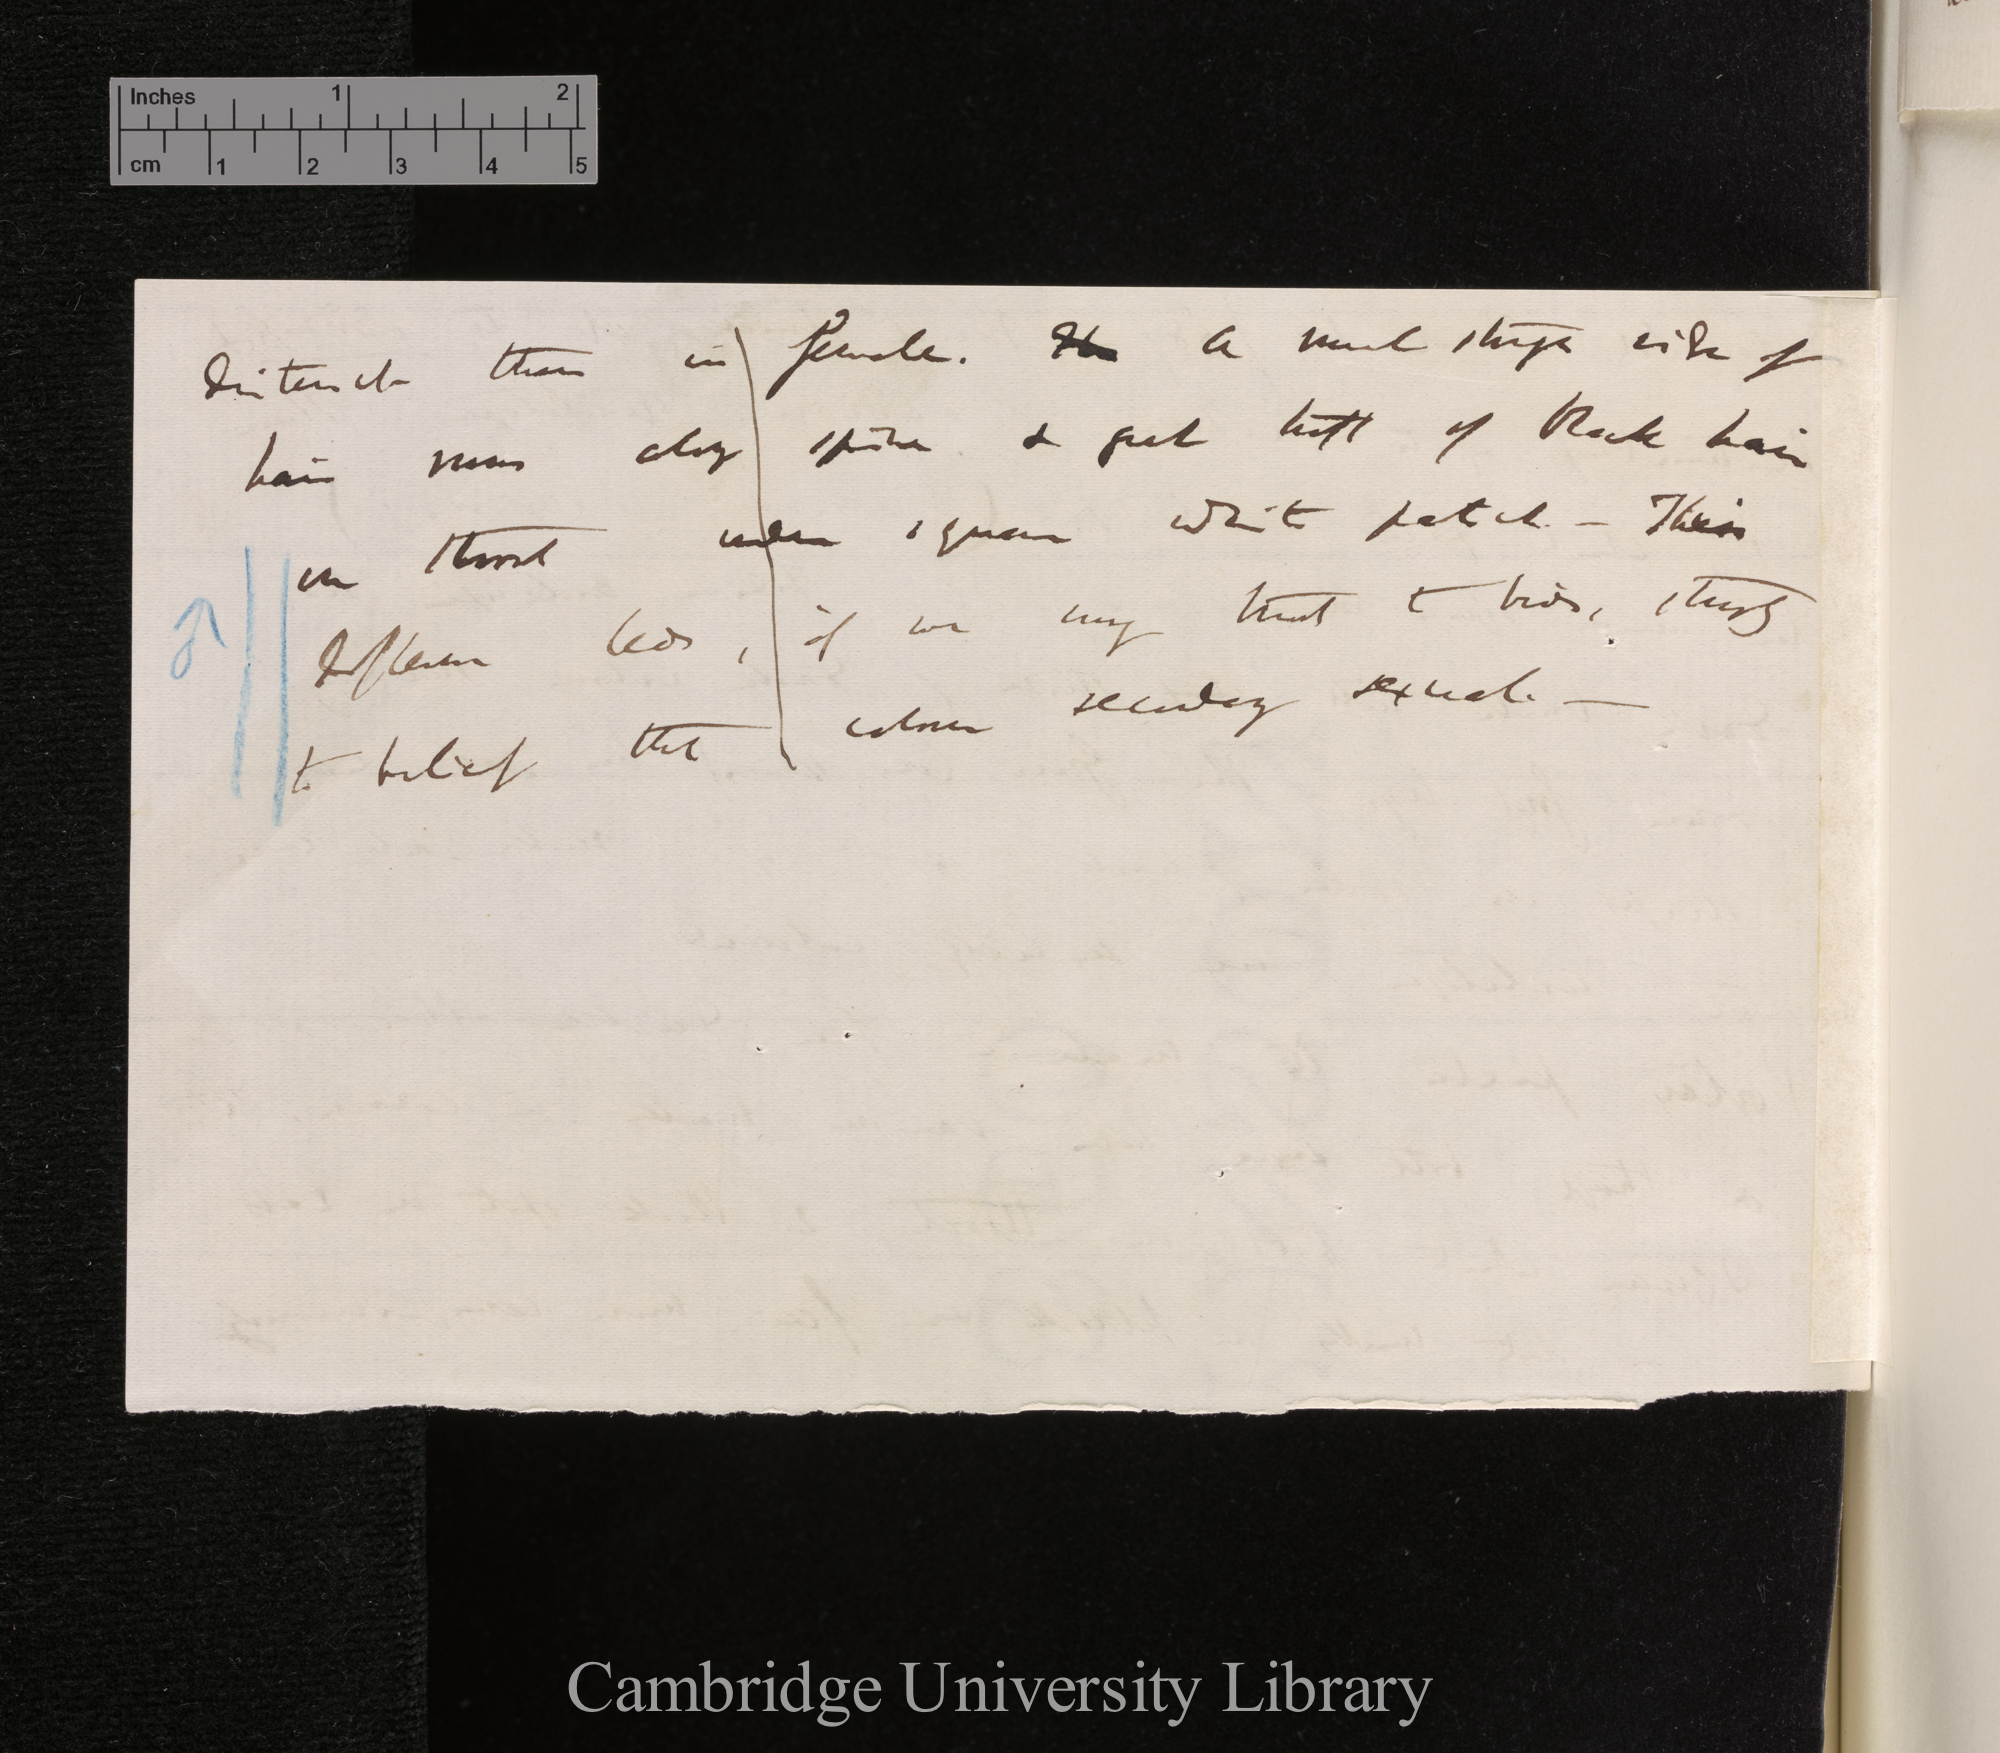 Inches 1 2
cm 1 2 3 4 5
distinct than in female. A much stronger ridge of
hair runs along spine & great tuft of black hair
on throat under square white patch. — This
difference leads, if we may trust to birds, strongly
to belief that colour secondary sexual. —
Cambridge University Library